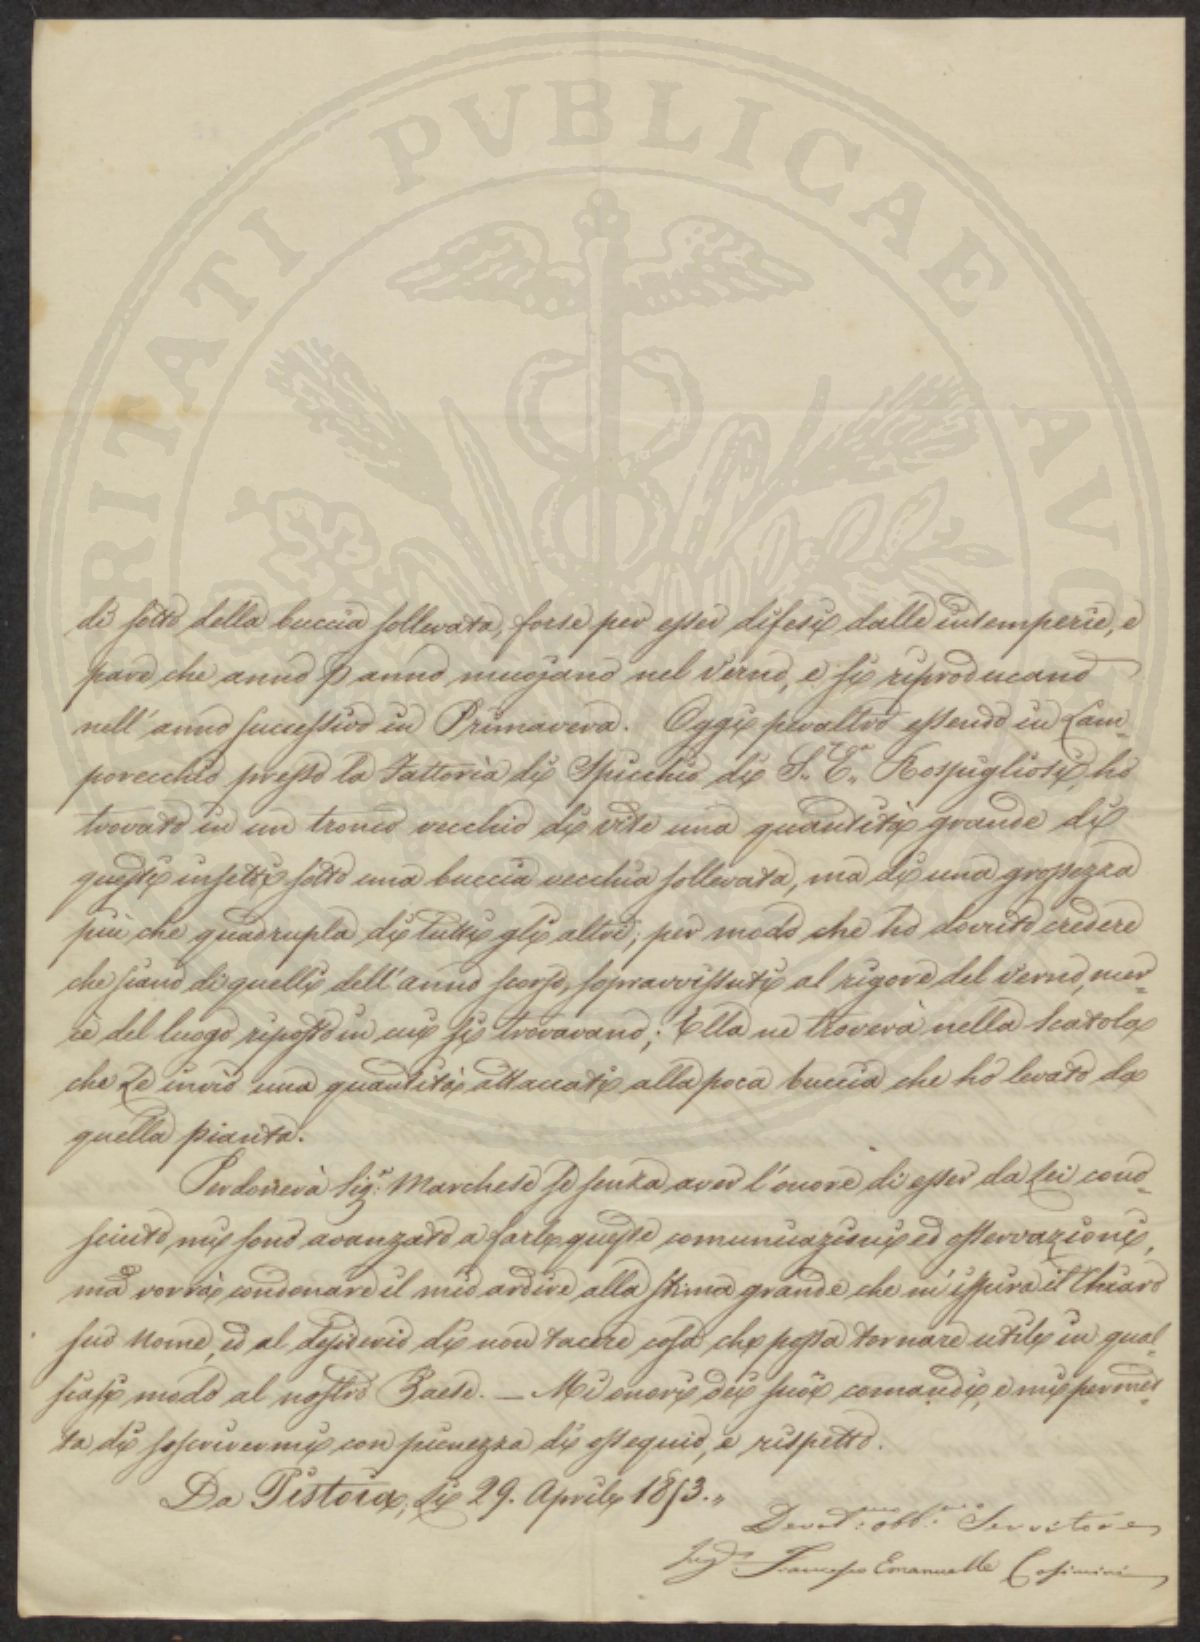 PROSPERITATI PVBLICAE AVGENDAE
di sotto della buccia sollevata, forse per esser difesi dalle intemperie, e
pare che anno p anno muojano nel Verno, e si riproducano
nell'anno successivo in Primavera. Oggi peraltro essendo in Lam-
porecchio presso la Fattoria di Spicchio di S. E. Rospigliosi, ho
trovato in un tronco vecchio di vite una quantità grande di
questi insetti sotto una buccia vecchia sollevata, ma di una grossezza
più che quadrupla di tutti gli altri; per modo che ho dovuto credere
che siano di quelli dell'anno scorso, sopravvissuti al rigore del Verno, mer-
cè del luogo riposto in cui si trovavano; Ella ne troverà nella Scatola
che Le invio una quantità attaccati alla poca buccia che ho levato da
quella pianta.
Perdonerà Sigr. Marchese se senza aver l'onore di esser da Lei cono-
sciuto, mi sono avanzato a farle queste comunicazioni ed osservazioni,
ma vorrà condonare il mio ardire alla stima grande che m'ispira il Chiaro
suo Nome, ed al desiderio di non tacere cosa che possa tornare utile in qual-
siasi modo al nostro Paese. — Mi onori dei suoi comandi, e mi permet-
ta di soscrivermi con pienezza di ossequio, e rispetto.
Da Pistoia, li 29. Aprile 1853.
Devot.mo obb.mo Servitore
Francesco Emanuelle Cosimini